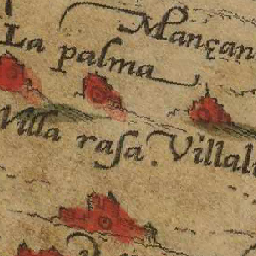 Mançan
La palma
Villa rasa. Villal